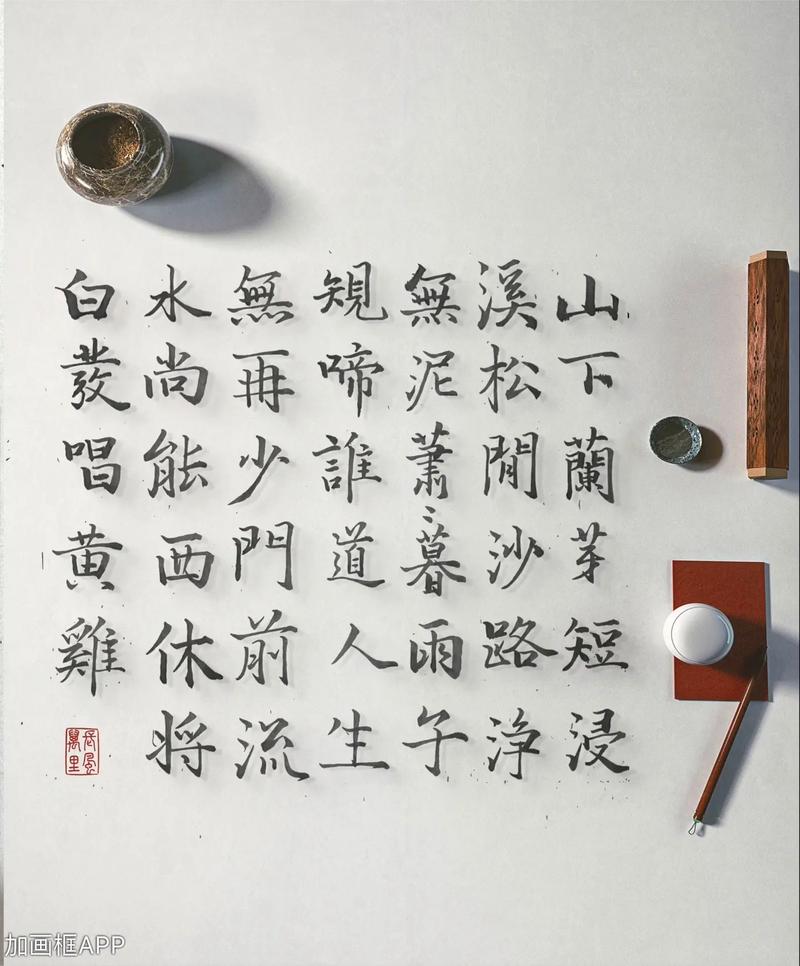 山下蘭芽短浸
溪松閒沙路净
無泥蕭〻暮雨子
規啼誰道人生
無再少門前流
水尚能西休将
白發唱黄雞
長風萬里
加画框APP